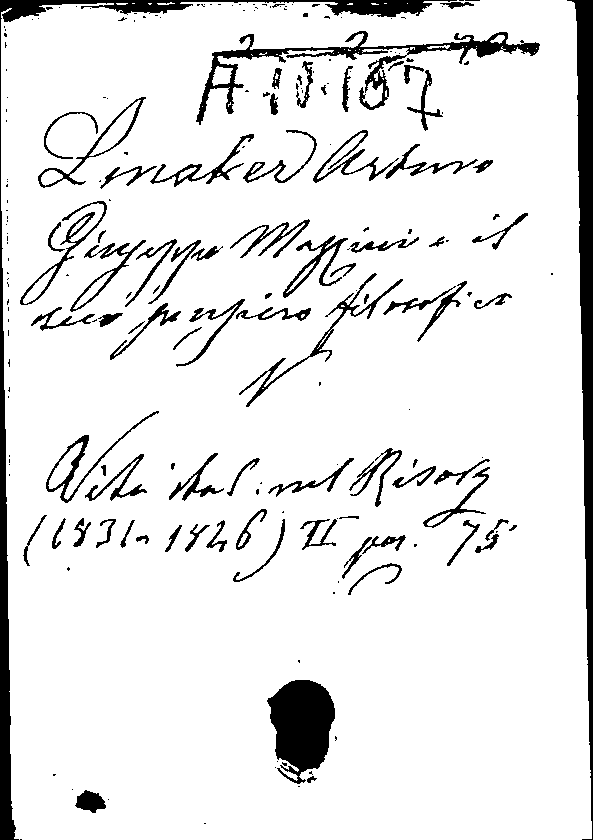 2 2 70
A·10·167
Linaker Arturo
Giuseppe Mazzini e il
suo pensiero filosofico
V.
Vita ital. nel Risorg
(1831-1846) II pag. 75